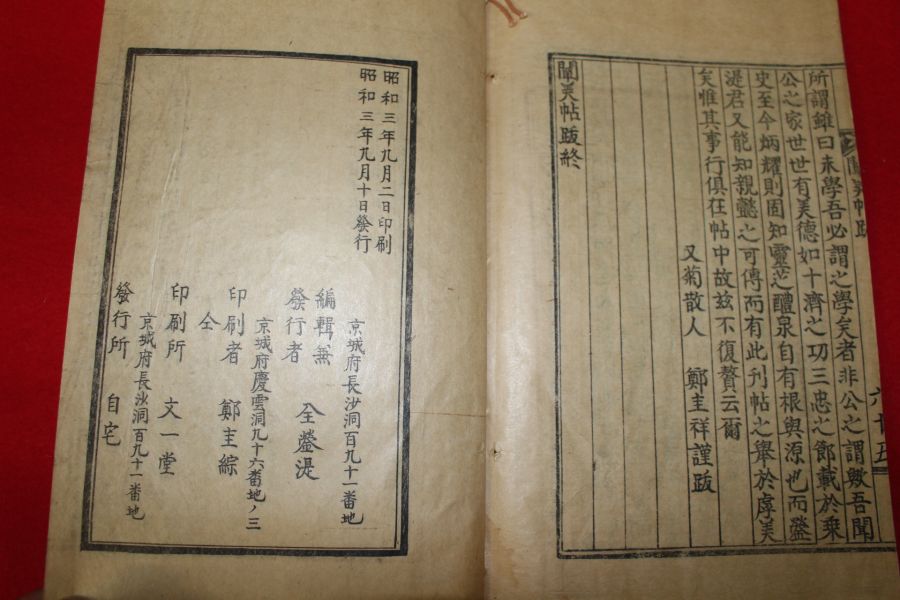 所謂雖曰未學吾必謂之學矣者非公之謂歟吾聞
公之家世世有美德如十濟之功三忠之節載於乘
史至今炳耀則固知靈芝醴泉自有根與源也而鎣
湜君又能知親懿之可傳而有此刊帖之舉於虖美
矣惟其事行俱在帖中故玆不復贅云爾
又菊散人 鄭圭祥謹跋
闡美帖跋終
昭和三年九月二日印刷
昭和三年九月十日發行
京城府長沙洞百九十一番地
編輯兼
發行者 全鎣湜
京城府慶雲洞九十六番地ノ三
印刷者 鄭圭綜
仝
印刷所 文一堂
京城府長沙洞百九十一番地
發行所 自宅